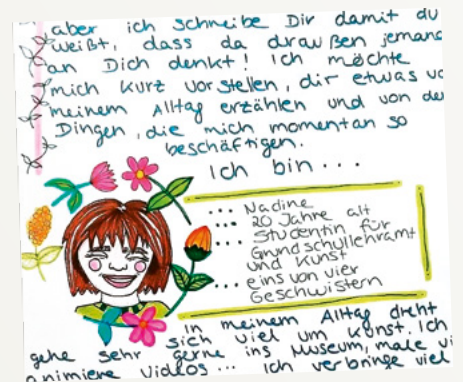 aber ich schreibe Dir damit du
weißt, dass da draußen jemand
an Dich denkt! Ich möchte
mich kurz vorstellen, dir etwas vo
meinem Alltag erzählen und von de
Dingen, die mich momentan so
beschäftigen.
Ich bin...
... Nadine
... 20 Jahre alt
... Studentin für
Grundschullehramt
und Kunst
... eins von vier
Geschwistern
In meinem Alltag dreht
sich viel um Kunst. Ich
gehe sehr gerne ins Museum, male vi
animiere Videos... Ich verbringe viel